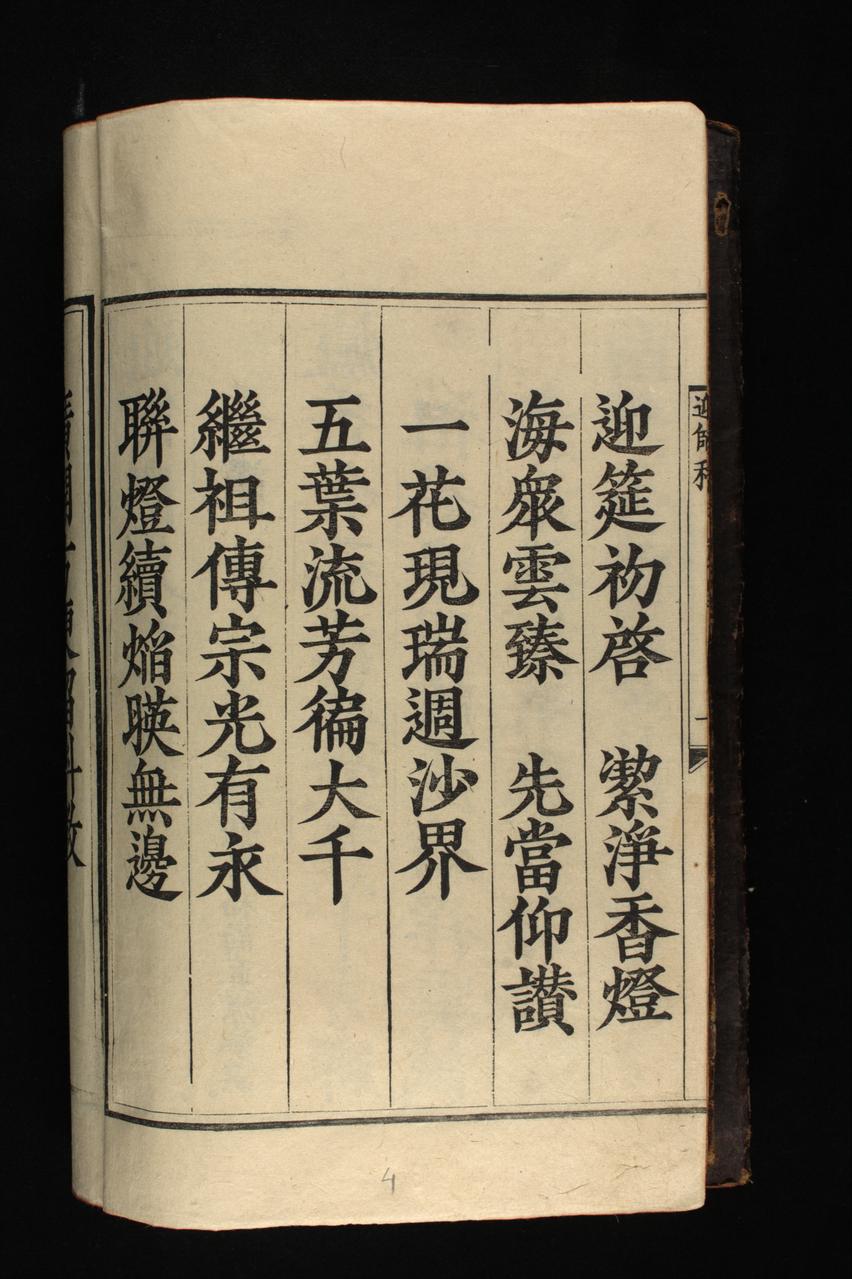 迎師科
迎筵初啓 潔淨香燈
海衆雲臻 先當仰讃
一花現瑞週沙界
五葉流芳徧大千
繼祖傳宗光有永
聯燈續焔暎無邊
4